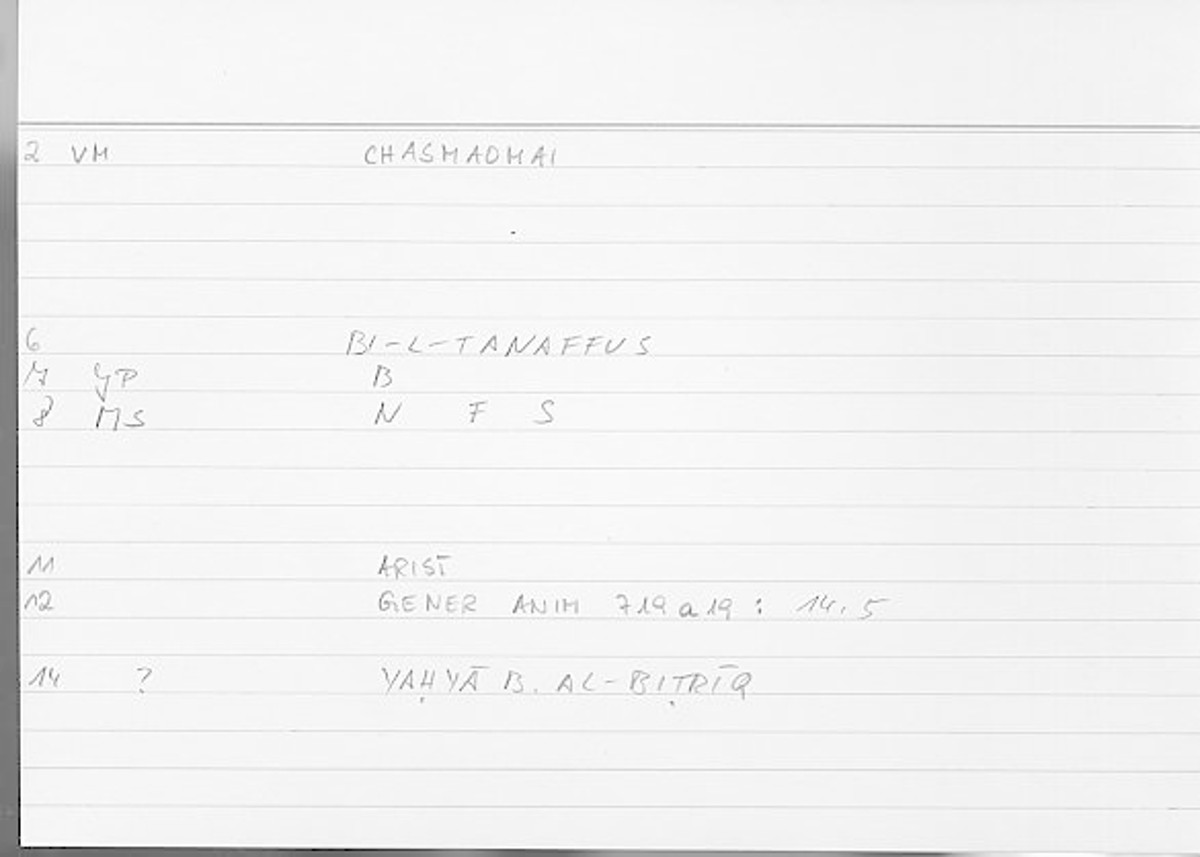 2 VM CHASMAOMAI
6 BI-L-TANAFFUS
7 YP B
8 MS N F S
11 ARIST
12 GENER ANIM 719a19 : 14.5
14 ? YAḤYĀ B. AL-BIṬRĪQ